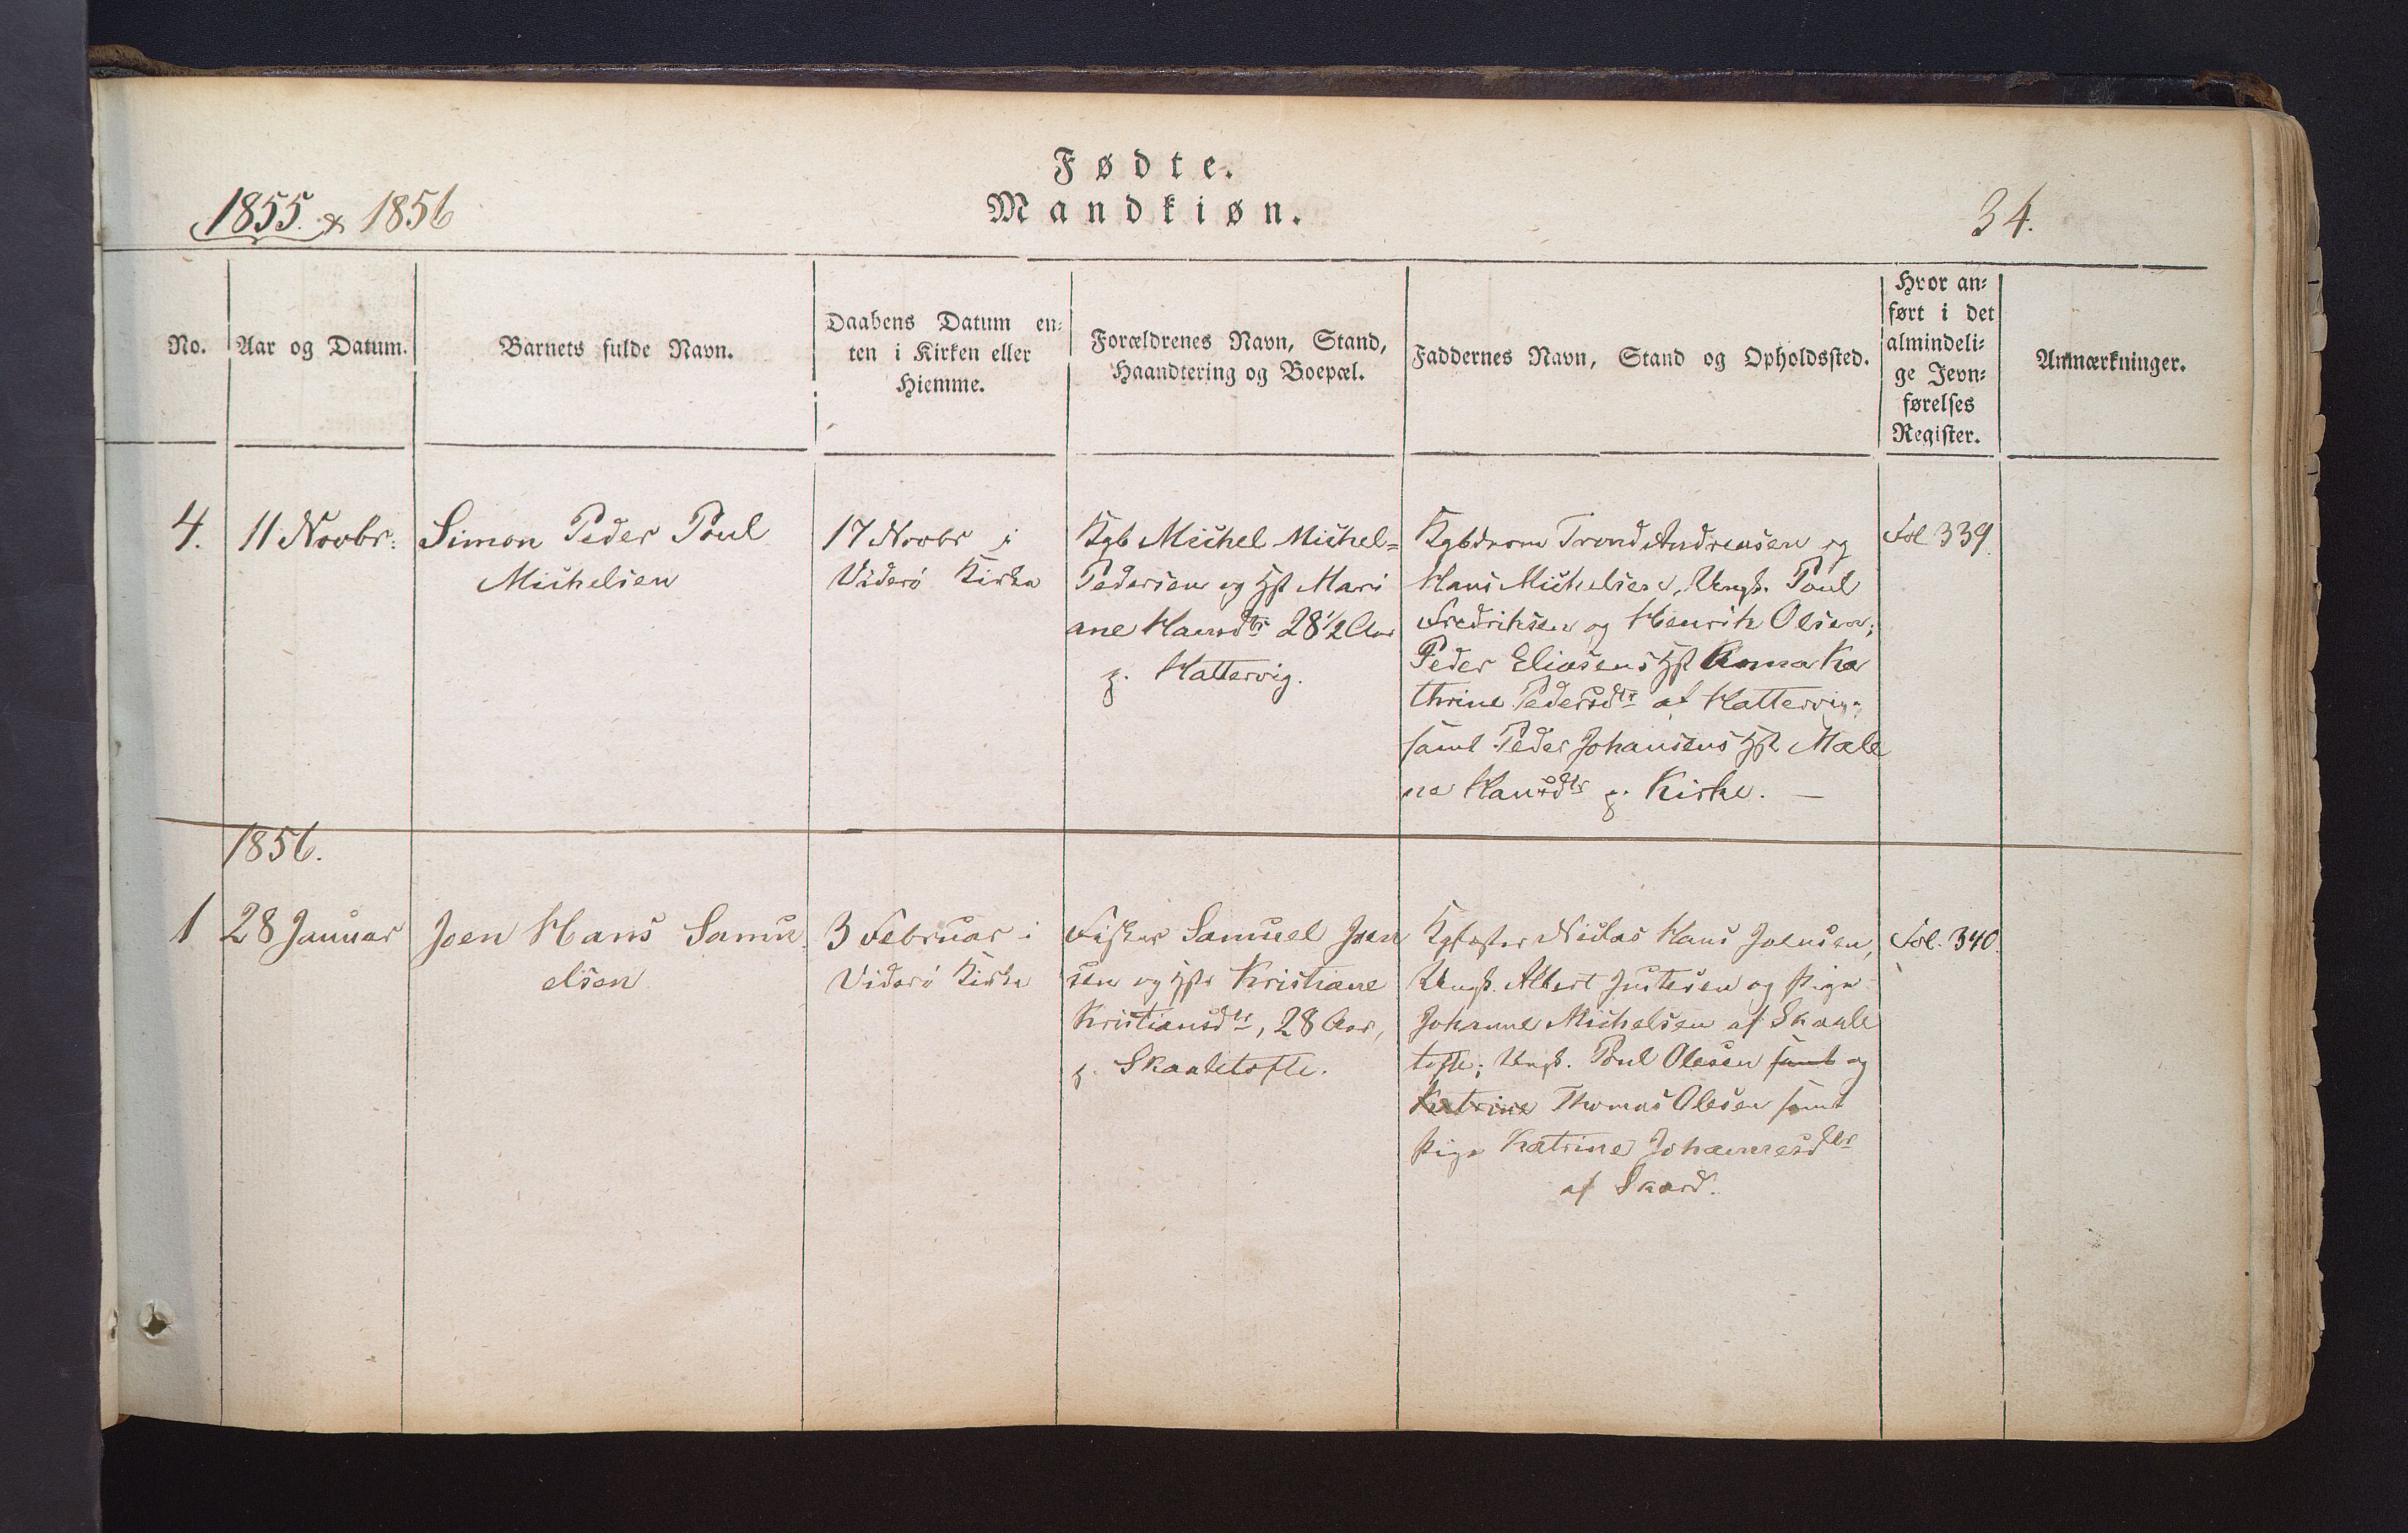 Fødte.
Mandkiøn.
1855. & 1856
34.
No.
Aar og Datum.
Barnets fulde Navn.
Daabens Datum en-
ten i Kirken eller
Hiemme.
Forældrenes Navn, Stand,
Haandtering og Boepæl.
Faddernes Navn, Stand og Opholdssted.
Hvor an-
ført i det
almindeli-
ge Jevn-
førelses
Register.
Anmærkninger.
4.
11 Novbr:
Simon Peder Poul
Michelsen
17 Novbr i
Viderö Kirke
Kgb Michel Michel=
Pedersen og Hst Mari
ane Hansdtr 28 1/2 Aar
p. Hattervig.
Trond Andreasen og
Hans Michelsen, Ungk. Poul
Fredriksen og Henrik Olsen;
Peder Eliasens Hst Anna Ka
thrine Pedersdtr af Hattervig,
samt Peder Johansens Hst Male
na Hansdtr p. Kirke. —
Fol 339.
1856.
1
28 Januar
Joen Hans Samu
elsen
3 Februar i
Viderö Kirke
Fisker Samuel Joen
sen og Hstr Kristiane
Kristiansdtr, 28 Aar,
p. Skaaletofte.
Niclas Hans Joensen,
Ungk. Albert Justesen og Pige
Johanne Michelsen af Skaale
tofte; Ungk. Poul Olesen samt og
Katrine Thomas Olesen samt
Pige Katrine Johannesdtr
af Skard.
Fol. 340.